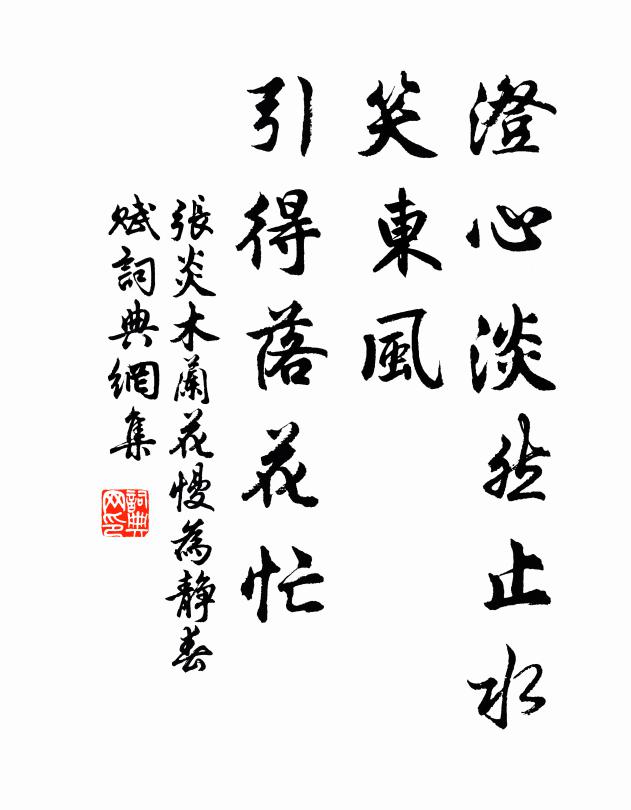 澄心淡然止水
笑東風
引得落花忙
張炎木蘭花慢為静春
賦詞典網集
詞典
网印